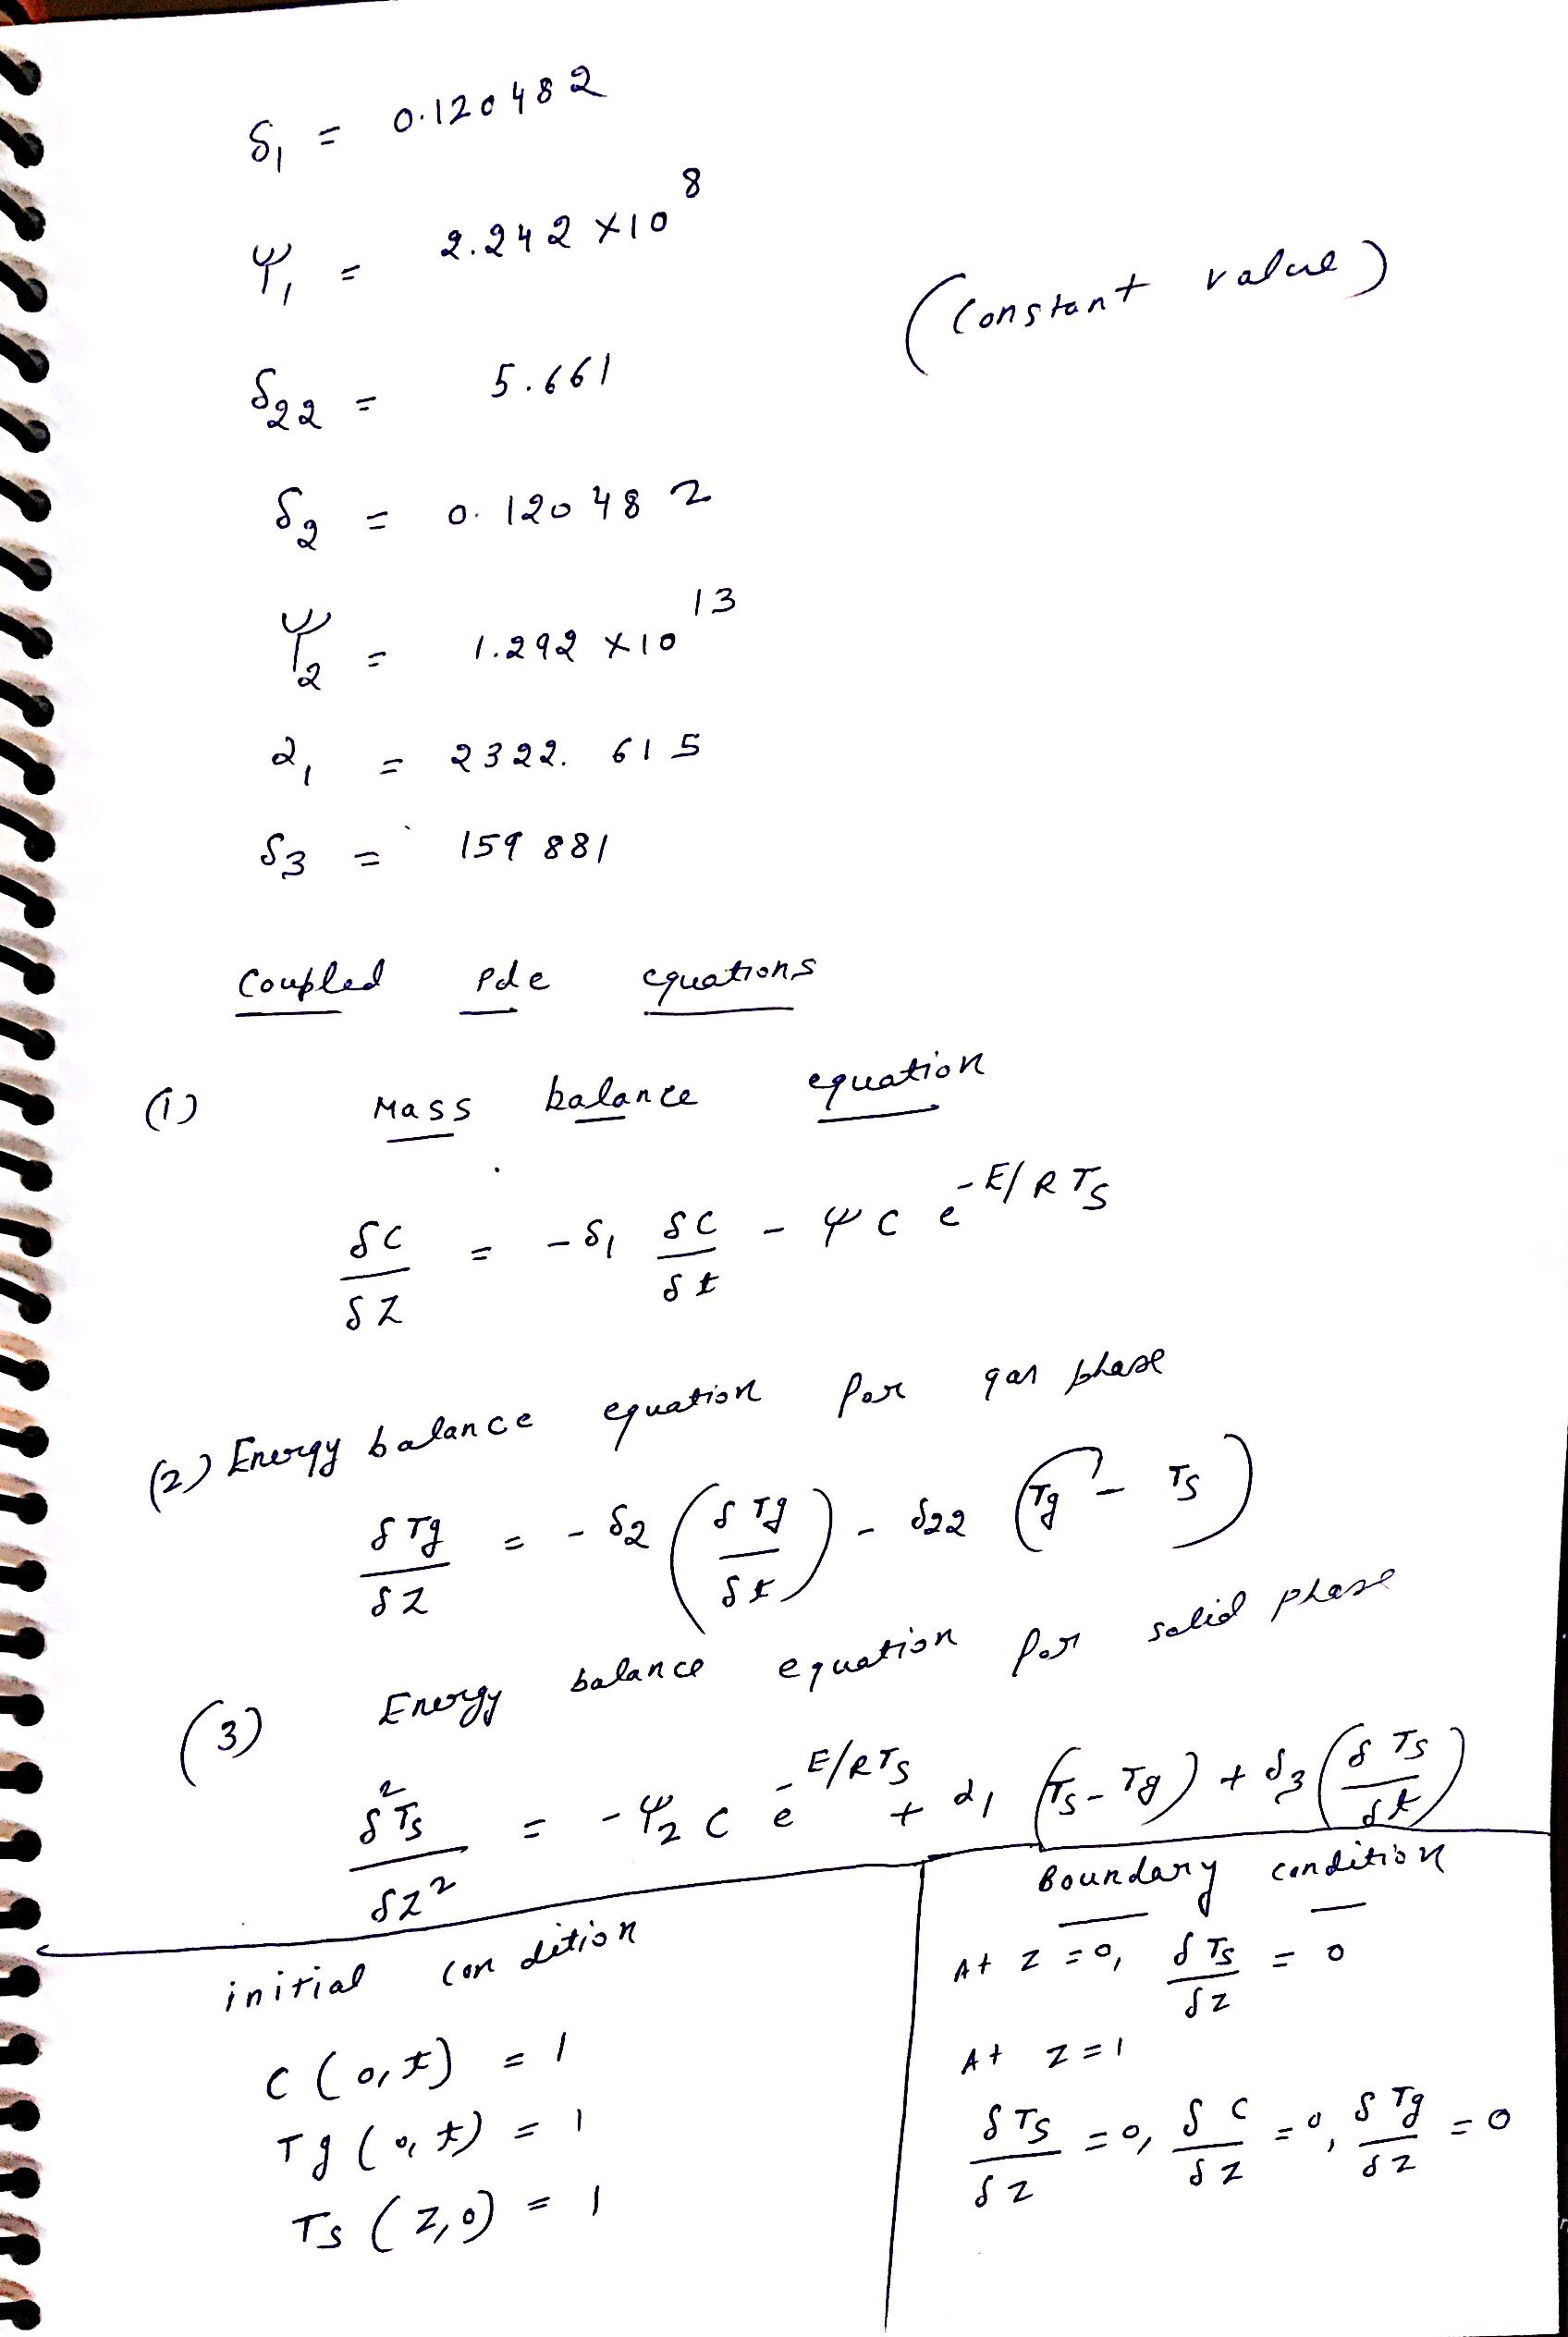 δ₁ = 0.120482
Ψ₁ = 2.242 × 10⁸
(Constant value)
δ₂₂ = 5.661
δ₂ = 0.120482
Ψ₂ = 1.292 × 10¹³
α₁ = 2322.615
δ₃ = 159881
Coupled Pde equations
(1) Mass balance equation
δC/δz = -δ₁ δC/δt - Ψ C e^(-E/RTs)
(2) Energy balance equation for gas phase
δTg/δz = -δ₂ (δTg/δt) - δ₂₂ (Tg - Ts)
(3) Energy balance equation for solid phase
δ²Ts/δz² = -Ψ₂ C e^(-E/RTs) + α₁ (Ts - Tg) + δ₃ (δTs/δt)
initial condition
C(0,t) = 1
Tg(0,t) = 1
Ts(z,0) = 1
Boundary condition
At z = 0, δTs/δz = 0
At z = 1
δTs/δz = 0, δC/δz = 0, δTg/δz = 0